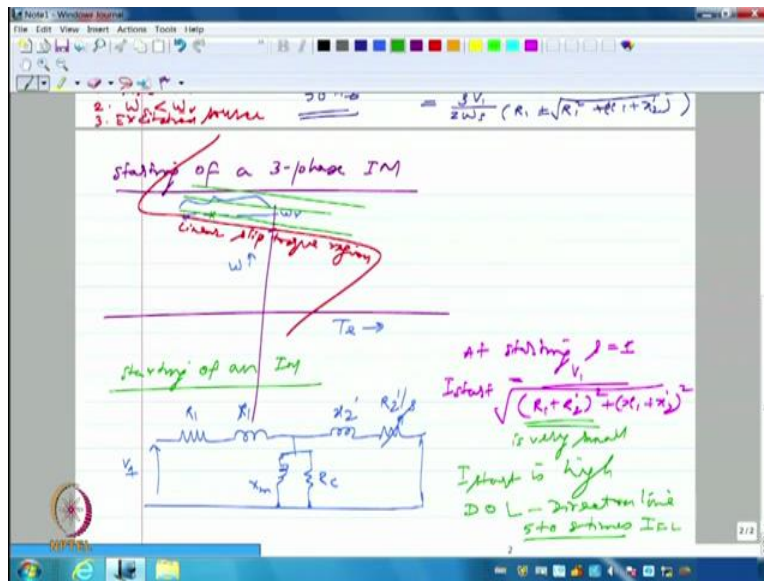 Note1 - Windows Journal
File Edit View Insert Actions Tools Help
3. Excitation source
= 3V₁ / 2ωs (R₁ ± √R₁² + (x₁ + x₂')²)
starting of a 3-phase IM
ωr
Linear slip torque region
ω↑
Te →
starting of an IM
R₁ X₁ x₂' R₂'/s
V₁
Xm Rc
At starting s = 1
Istart = V₁ / √(R₁+R₂')² + (x₁+x₂')²
is very small
Istart is high
DOL - Direct on line
5 to 8 times IFL
NPTEL
2
2/2